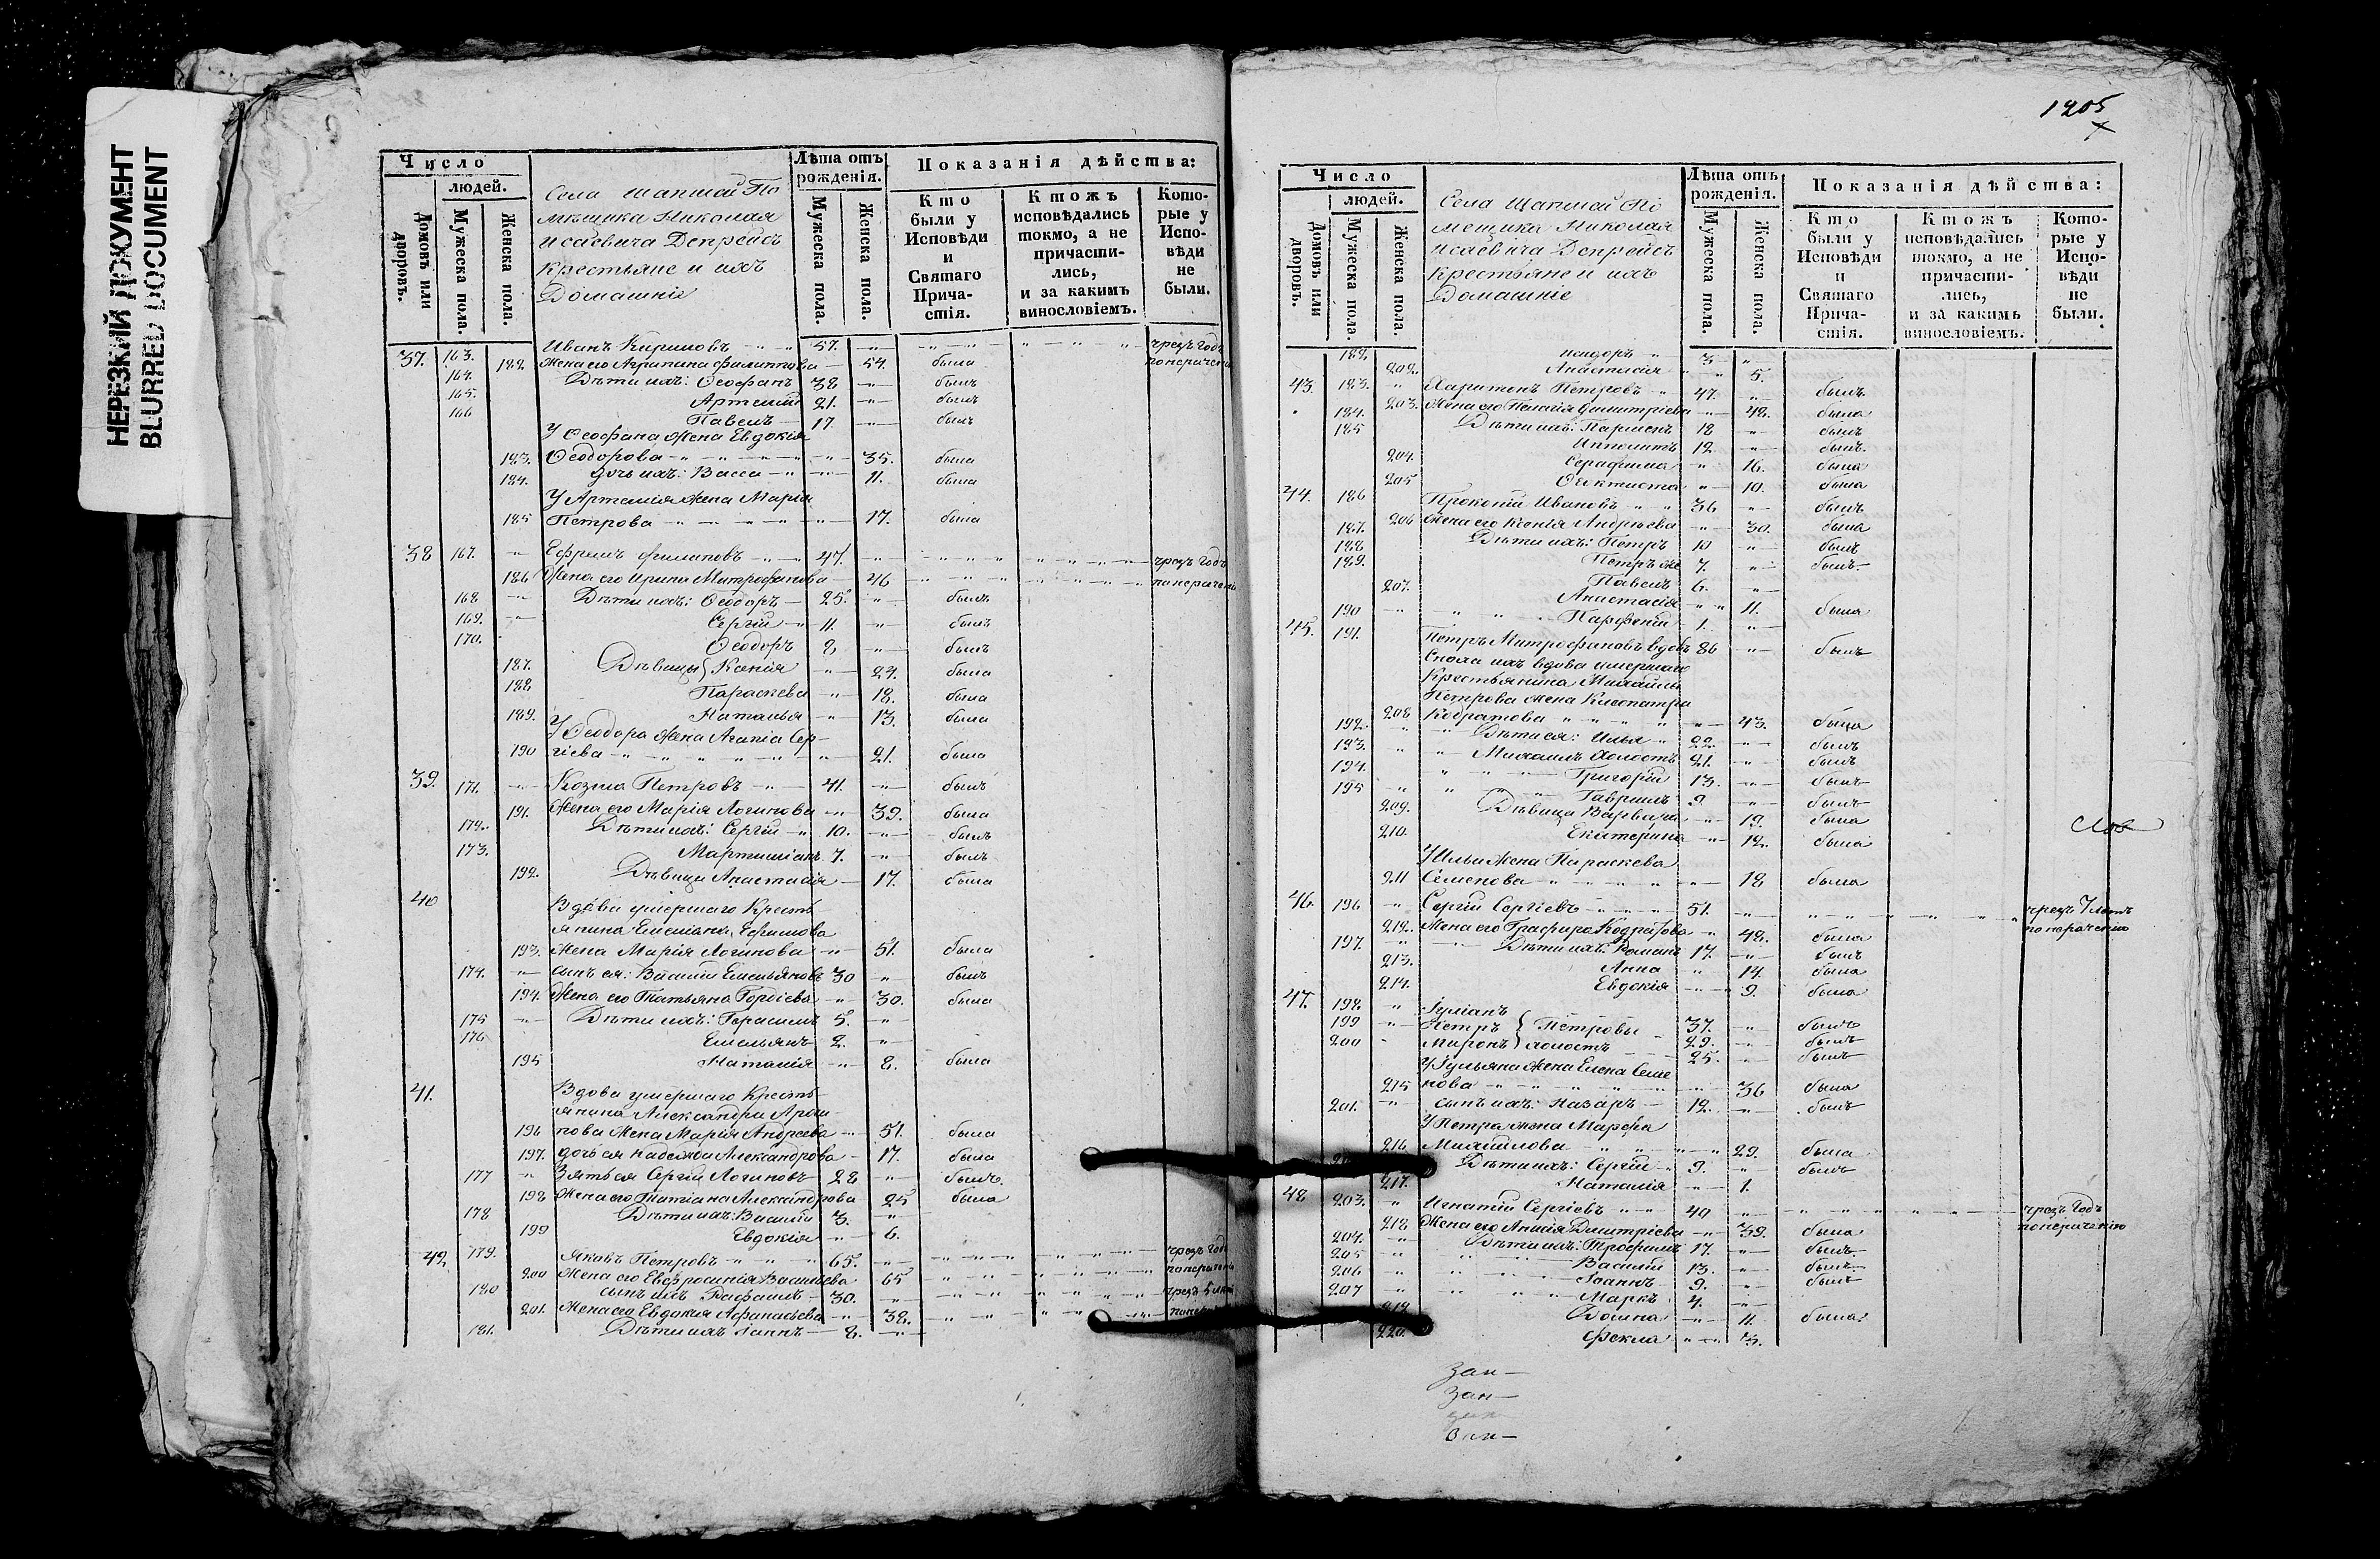 НЕРЕЗКИЙ ДОКУМЕНТ
BLURRED DOCUMENT
Число
людей.
Домовъ или дворовъ.
Мужеска пола.
Женска пола.
Села Помѣщика Николая
Исаевича Депрейсъ
Крестьяне и ихъ
Домашніе
Лѣта отъ рожденія.
Мужеска пола.
Женска пола.
Показанія дѣйства:
Кто были у Исповѣди и Святаго Причастія.
Ктожъ исповѣдались токмо, а не причастились, и за какимъ винословіемъ.
Которые у Исповѣди не были.
37. 163. Иванъ Кириловъ 57. чрезъ годъ
182. Жена его Агрипина Филиппова 54. была
164. Дѣти ихъ: Ѳеофанъ 38 былъ
165. Артемій 21. былъ
166 Павелъ 17. былъ
У Ѳеофана жена Евдокія
183. Ѳеодорова 35. была
184. Дочь ихъ: Васса 11. была
У Артемія жена Марія
185 Петрова 17. была
38 167. Ефремъ Филиповъ 47. чрезъ годъ
186 Жена его Ирина Митрофанова 46
168 Дѣти ихъ: Ѳеодоръ 25. былъ
169. Сергій 11. былъ
170. Ѳеодоръ 8 былъ
187. Дѣвицы Ксенія 24. была
188 Параскева 18. была
189. Наталья 13. была
У Ѳеодора жена Агапіа Сер-
190 гіева 21. была
39. 171. Козма Петровъ 41. былъ
191. Жена его Марія Логинова 39. была
172. Дѣти ихъ: Сергій 10. былъ
173. Мартиніанъ 7. былъ
192. Дѣвица Анастасія 17. была
40 Вдова умершаго Кресть-
янина Емеліана Ефимова
193. Жена Марія Логинова 51. была
174. сынъ ея: Василій Емельяновъ 30 былъ
194. Жена его Татьяна Гордіева 30. была
175 Дѣти ихъ: Герасимъ 5.
176 Емельянъ 2.
195 Наталія 8. была
41. Вдова умершаго Кресть-
янина Александра
196 Жена Марія Андреева 51. была
197. дочь ея Надежда Александрова 17. была
177 Зять ея Сергій Логиновъ 28 былъ.
198 Жена его Татіана Александрова 25 была
178 Дѣти ихъ: Василій 3.
199 Евдокія 6.
42 179. Яковъ Петровъ 65. чрезъ год
200 Жена его Евфросинія Васильева 65
180 сынъ ихъ 30.
201. Жена его Евдокія Афанасьева 38.
181. Дѣти ихъ Іаннъ 8.
1205
Число
людей.
Домовъ или дворовъ.
Мужеска пола.
Женска пола.
Села По
мещика Николая
Исаевича Депрейсъ
Крестьяне и ихъ
Домашніе
Лѣта отъ рожденія.
Мужеска пола.
Женска пола.
Показанія дѣйства:
Кто были у Исповѣди и Святаго Причастія.
Ктожъ исповѣдались токмо, а не причастились, и за какимъ винословіемъ.
Которые у Исповѣди не были.
182 3
202. Анастасія 5.
43. 183. Харитонъ Петровъ 47. былъ
203. Жена его Пелагія Димитріева 42. была
184. Дѣти ихъ: Парменъ 18 былъ
185 Ипполитъ 12. былъ.
204. Серафима 16. была
205 Ѳектиста 10. была
44. 186 Прокопій Ивановъ 36 былъ
206 Жена его Ксенія Андрѣева 30. была
187. Дѣти ихъ: Петръ 10 былъ
188 Петръ же 7. былъ.
189. Павелъ 6.
207. Анастасія 11. была
190 Парфеній 1.
45. 191. Петръ Митрофановъ вдовъ 86 былъ
Сноха ихъ вдова умершаго
Крестьянина Михаила
Петрова жена Клеопатра
208 Кодратова 43. была
192. Дѣти ея: Илья 22. былъ
193. Михаилъ холостъ 21. былъ
194. Григорій 13. былъ
195 Гавріилъ 9. былъ
209. Дѣвица Варвара 19. была
210. Екатерина 12. была
У Ильи жена Параскева
211 Семенова 18 была
46. 196 Сергій Сергіевъ 51. чрезъ 7 летъ
212. Жена его Глафира Кодратова 48. была
197. Дѣти ихъ: Романъ 17. былъ
213. Анна 14. была
214. Евдокія 9. была
47. 198 Іуліанъ 37. былъ
199 Петръ Петровы 29. былъ
200 Миронъ холостъ 25. былъ
У Іульяна жена Елена Семе
215 нова 36 была
201. сынъ ихъ: Назаръ 12. былъ
У Петра жена Марфа
216 Михайлова 29. была
Дѣти ихъ: Сергій 9. былъ
217. Наталія 1.
48 203. Игнатій Сергіевъ 40 чрезъ годъ
218 Жена его Анисія Дмитріева 39. была
204. Дѣти ихъ: Трофимъ 17. былъ
205 Василій 13. былъ
206 Іоаннъ 9. былъ
207 Маркъ 4.
219 Домна 11. была
220. Фекла 3.
Зап—
Зап—
Зап—